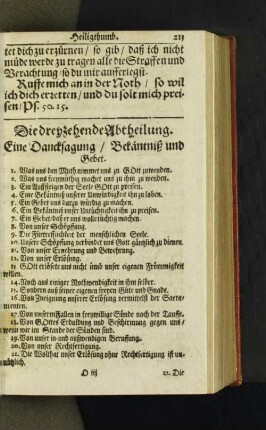 Heiligthumb. 213
tet dich zu erzürnen / so gib / daß ich nicht
müde werde zu tragen alle die Straffen und
Verachtung / so du mir aufferlegst.
Ruffe mich an in der Noth / so wil
ich dich erretten / und du solt mich prei-
sen / Ps. 50. 15.
Die dreyzehende Abtheilung.
Eine Dancksagung / Bekäntniß und
Gebet.
1. Was uns den Muth nimmet uns zu GOtt zuwenden.
2. Was uns freymüthig machet uns zu ihm zu wenden.
3. Ein Auffsteigen der Seele GOtt zu preisen.
4. Eine Bekäntniß unserer Unwürdigkeit ihn zu loben.
5. Ein Gebet uns darzu würdig zu machen.
6. Ein Bekäntniß unser Untüchtigkeit ihn zu preisen.
7. Ein Gebet/daß er uns wolle tüchtig machen.
8. Von unser Schöpffung.
9. Die Fürtrefflichkeit der menschlichen Seele.
10. Unsere Schöpffung verbindet uns Gott gäntzlich zu dienen.
11. Von unser Ernehrung und Bewehrung.
12. Von unser Erlösung.
13. GOtt erlösete uns nicht umb unser eigenen Frömmigkeit
willen.
14. Noch aus einiger Nothwendigkeit in ihm selber.
15. Sondern aus seiner eigenen freyen Güte und Gnade.
16. Von Zueignung unserer Erlösung vermittelst der Sacra-
menten.
17. Von unserm Fallen in freywillige Sünde nach der Tauffe.
18. Von GOttes Erduldung und Beschirmung gegen uns/
wenn wir im Stande der Sünden sind.
19. Von unser in- und auswendigen Beruffung.
20. Von unser Rechtfertigung.
21. Die Wolthat unser Erlösung ohne Rechtfertigung ist un-
nützlich.
O iij 22. Die